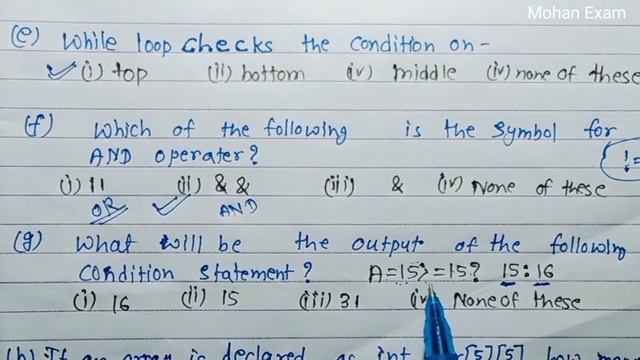 Mohan Exam
(e) While loop checks the condition on -
(i) top (ii) bottom (iv) middle (iv) none of these
(f) Which of the following is the symbol for
AND operater?
!=
(i) || (ii) && (iii) & (iv) None of these
OR AND
(g) What will be the output of the following
condition statement? A=15>=15? 15:16
(i) 16 (ii) 15 (iii) 31 (iv) None of these
(h) If an array is declared as int [5][5] how